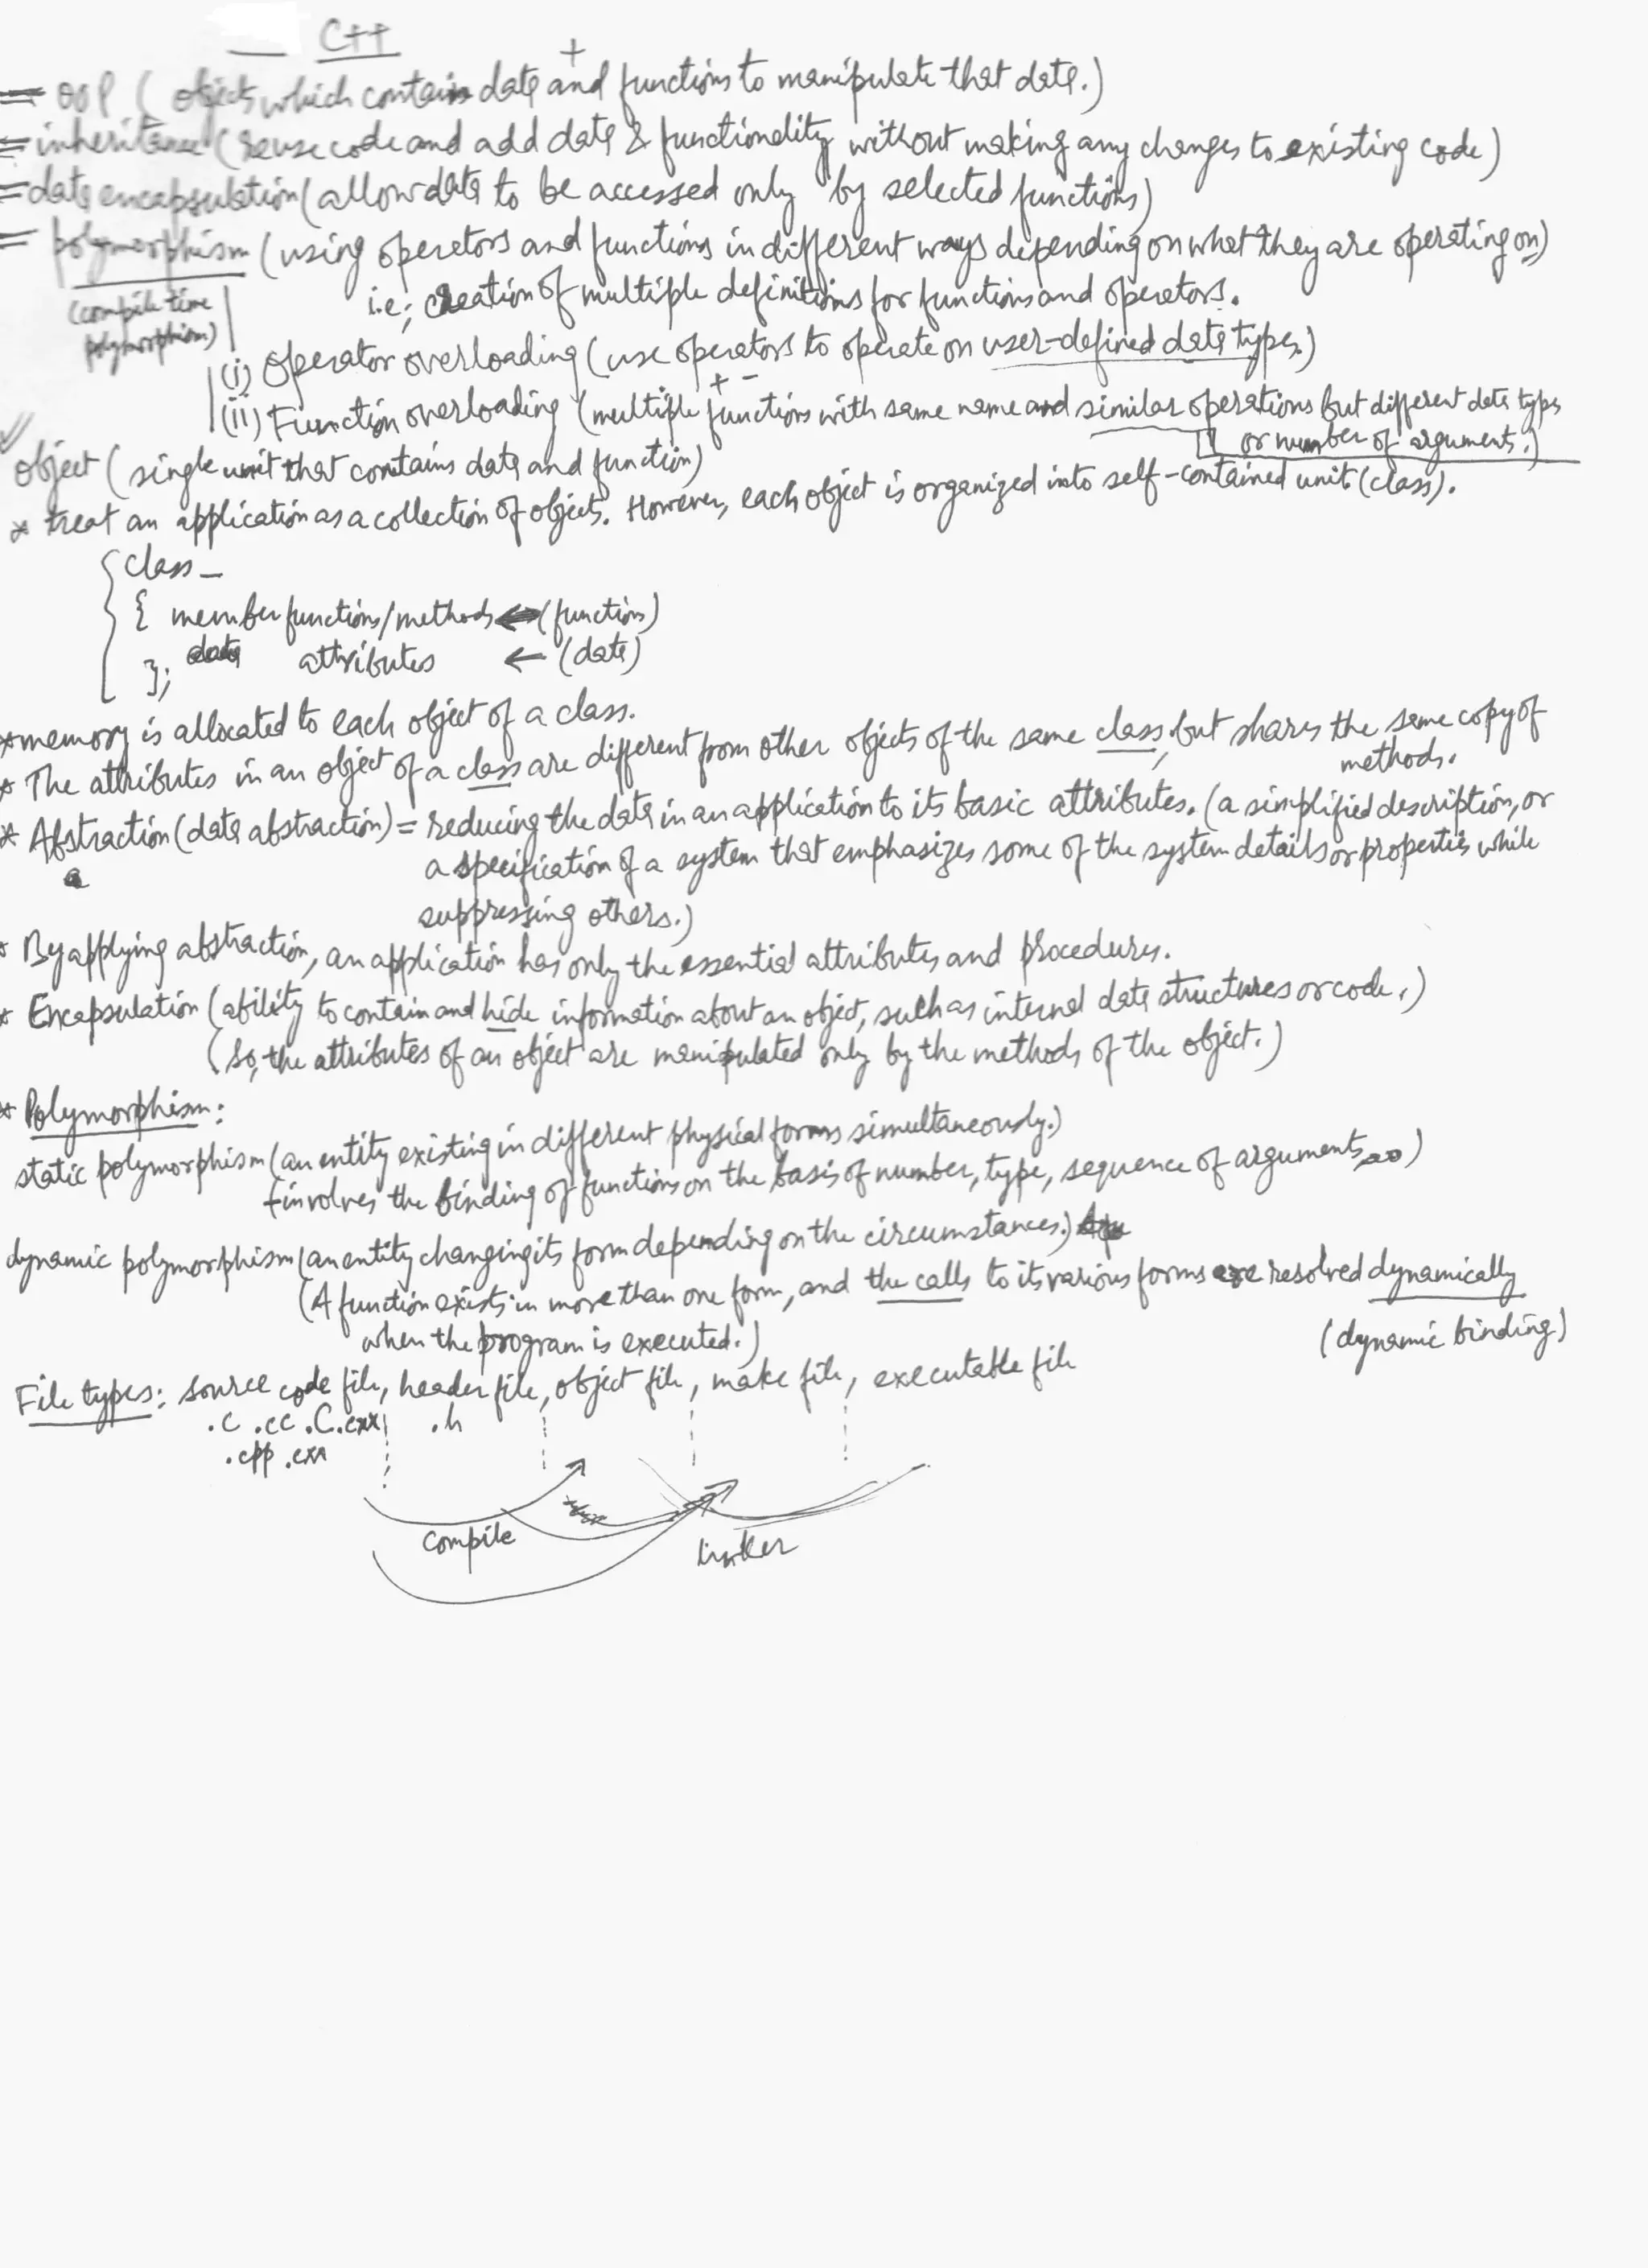 C++
= OOP ( objects which contain data and functions to manipulate that data.)
+
= inheritance (reuse code and add data & functionality without making any changes to existing code)
= data encapsulation (allow data to be accessed only by selected functions)
= polymorphism (using operators and functions in different ways depending on what they are operating on)
i.e; creation of multiple definitions for functions and operators.
(compile time
polymorphism)
(i) Operator overloading (use operators to operate on user-defined data types.)
+ -
(ii) Function overloading (multiple functions with same name and similar operations but different data types
or number of arguments.)
object (single unit that contains data and function)
* treat an application as a collection of objects. However, each object is organized into self-contained unit (class).
class _
{ member functions/methods ← (function)
data attributes ← (data)
};
* memory is allocated to each object of a class.
* The attributes in an object of a class are different from other objects of the same class, but shares the same copy of
methods.
* Abstraction (data abstraction) = reducing the data in an application to its basic attributes. (a simplified description, or
a specification of a system that emphasizes some of the system details or properties while
suppressing others.)
* By applying abstraction, an application has only the essential attributes and procedures.
* Encapsulation (ability to contain and hide information about an object, such as internal data structures or code.)
(so, the attributes of an object are manipulated only by the methods of the object.)
* Polymorphism:
static polymorphism (an entity existing in different physical forms simultaneously.)
+involves the binding of functions on the basis of number, type, sequence of arguments)
dynamic polymorphism (an entity changing its form depending on the circumstances.)
(A function exists in more than one form, and the calls to its various forms are resolved dynamically
when the program is executed.)
(dynamic binding)
File types: source code file, header file, object file, make file, executable file
.c .cc .C .cxx .h
.cpp
compile
linker